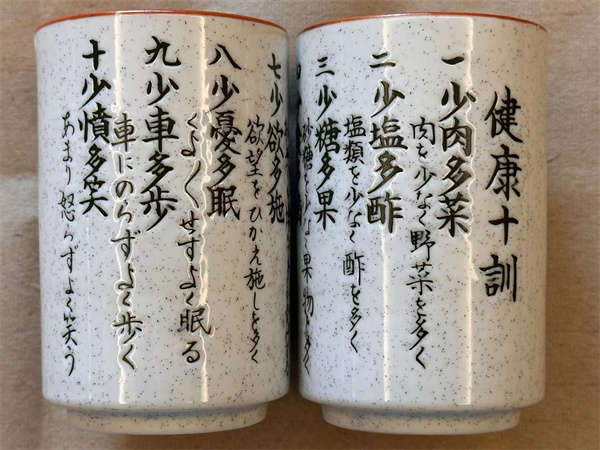 健康十訓
一少肉多菜
肉を少なく野菜を多く
二少塩多酢
塩類を少なく酢を多く
三少糖多果
砂糖を少なく果物を多く
七少欲多施
欲望をひかえ施しを多く
八少憂多眠
くよくよせずよく眠る
九少車多歩
車にのらずよく歩く
十少憤多笑
あまり怒らずよく笑う